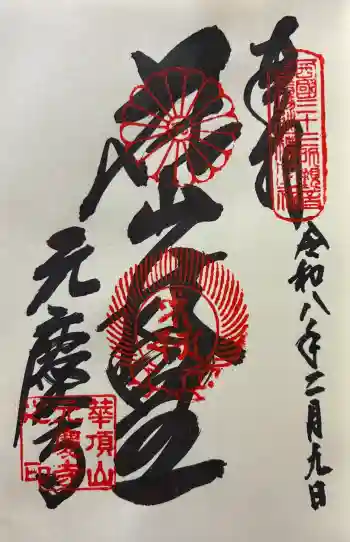 奉拝
西國三十三所観音
令和八年二月九日
花山法皇
元慶寺
華頂山
元慶寺
之印